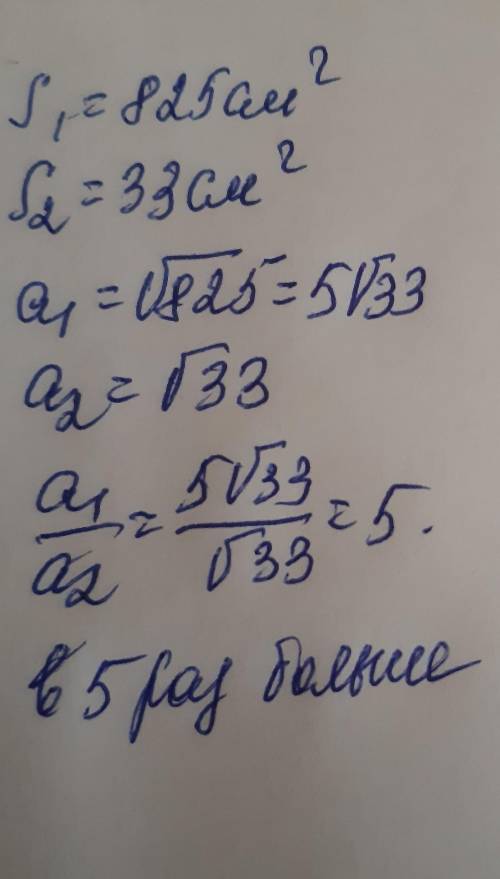 S₁ = 825 см²
S₂ = 33 см²
a₁ = √825 = 5√33
a₂ = √33
a₁/a₂ = 5√33/√33 = 5.
в 5 раз больше